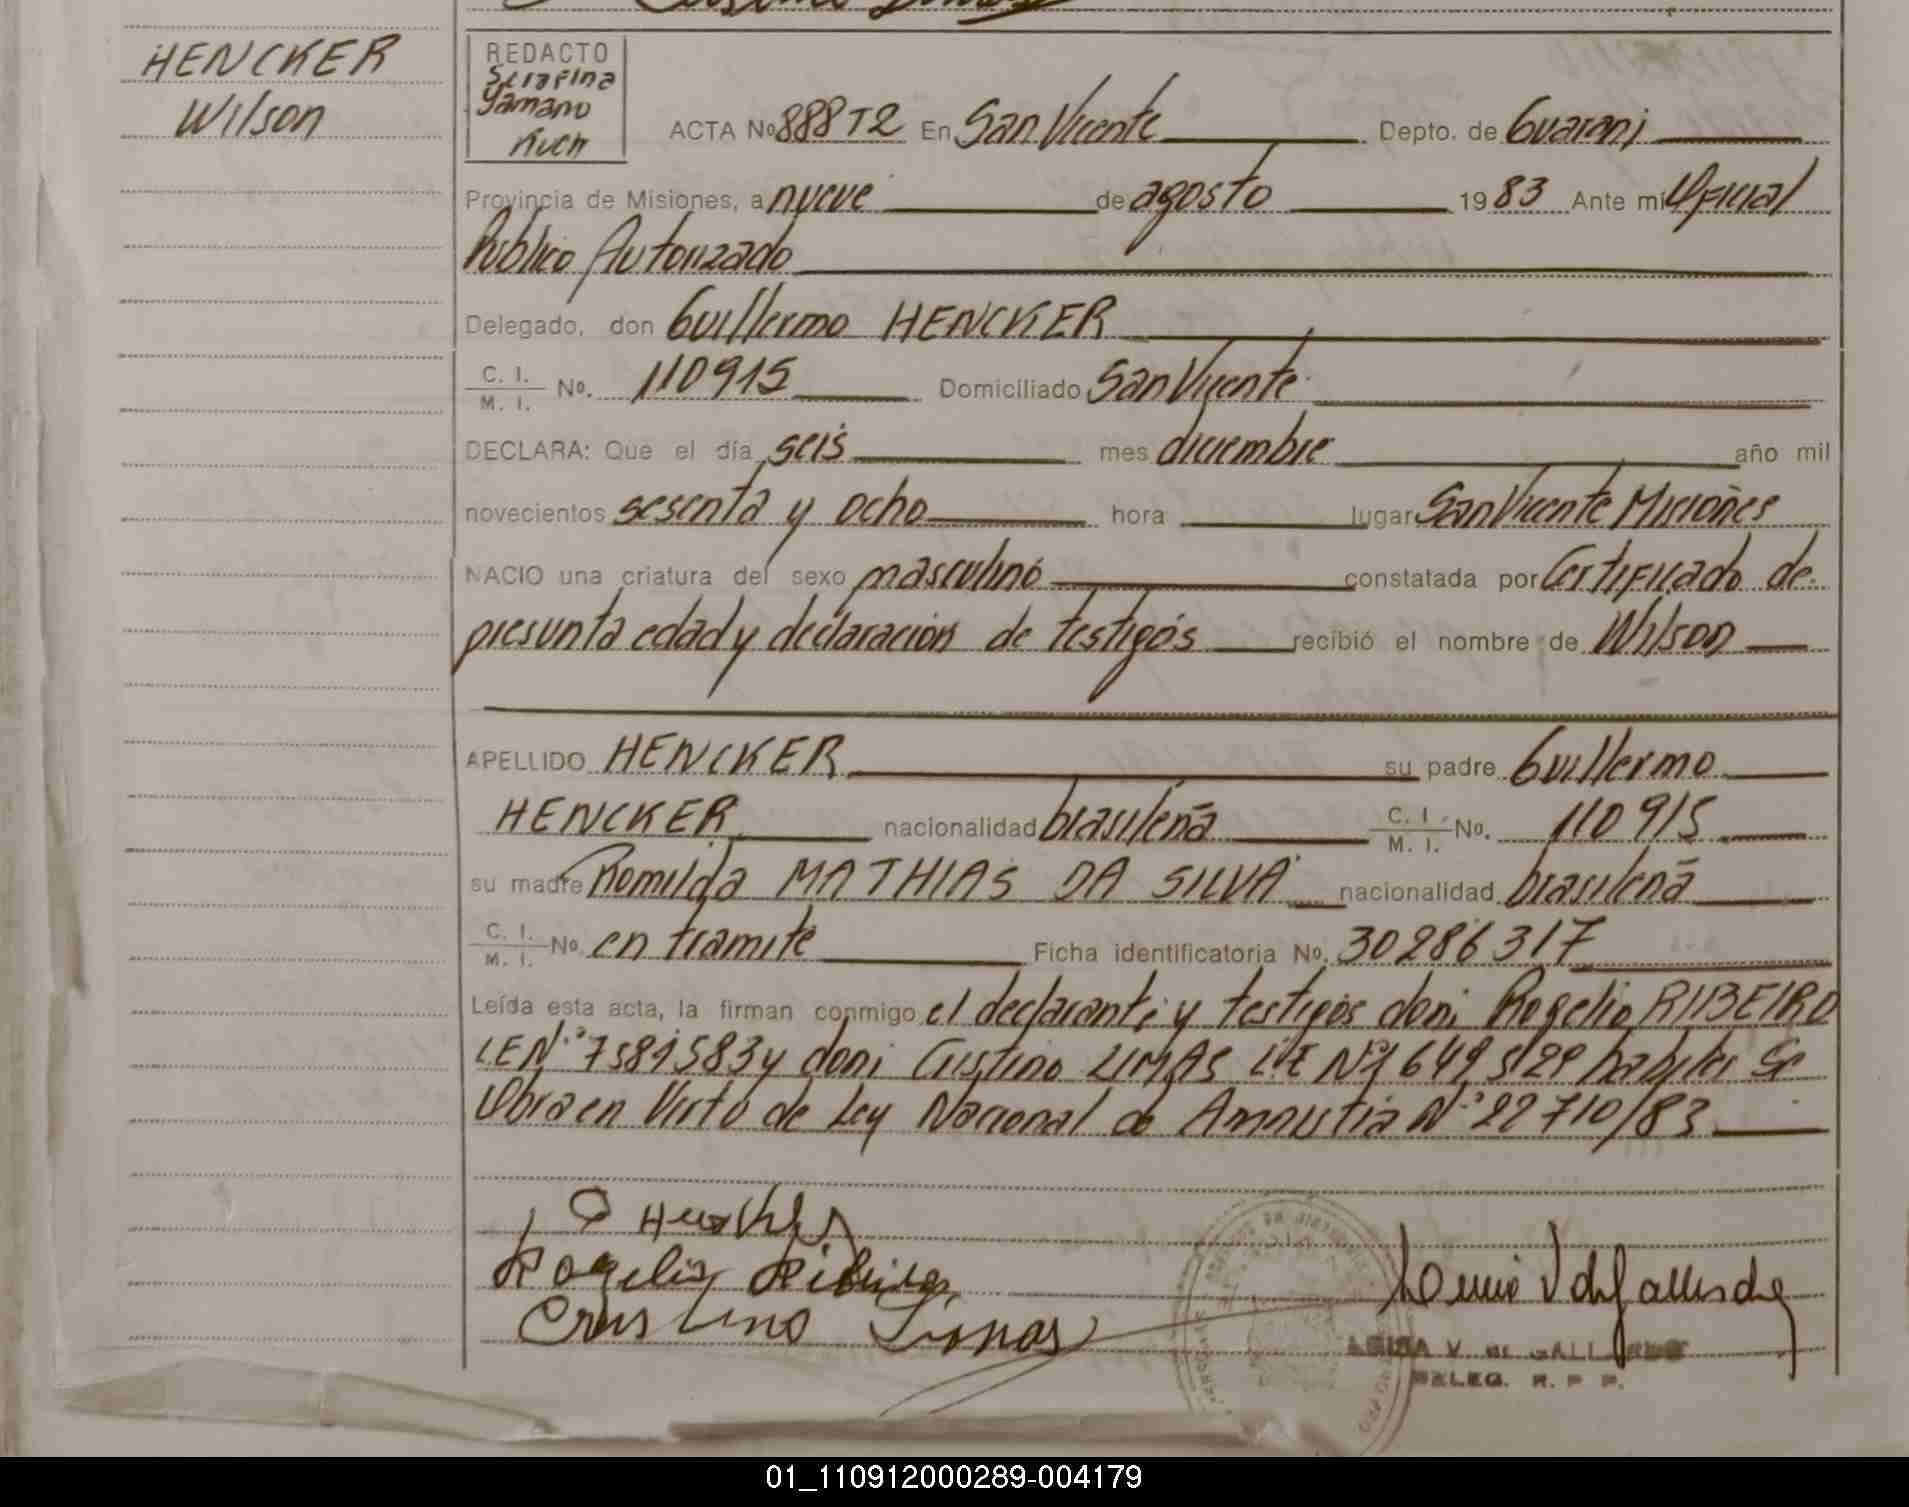 HENCKER
Wilson
REDACTO
Serafina
Yamano
Kuch
ACTA Nº 888 T2 En San Vicente Depto. de Guarani
Provincia de Misiones, a nueve de agosto 1983 Ante mí Oficial
Publico Autorizado
Delegado, don Guillermo HENCKER
C. I. / M. I. Nº. 110915 Domiciliado San Vicente
DECLARA: Que el día seis mes diciembre año mil
novecientos sesenta y ocho hora lugar San Vicente Misiones
NACIO una criatura del sexo masculino constatada por Certificado de
presunta edad y declaración de testigos recibió el nombre de Wilson
APELLIDO HENCKER su padre Guillermo
HENCKER nacionalidad brasileña C. I. / M. I. Nº. 110915
su madre Romilda MATHIAS DA SILVA nacionalidad brasileña
C. I. / M. I. Nº. en tramite Ficha identificatoria Nº. 30286317
Leída esta acta, la firman conmigo el declarante y testigos don: Rogelio RIBEIRO
LE Nº 7581583 y don: Cristino LIMAS LE Nº 7649529 habiles Se
Obra en Virtd de Ley Nacional de Amnistia Nº 22710/83
Rogelio Ribeiro
Cristino Limas
V. de GALLARDO
DELEG. R. P. P.
01_110912000289-004179